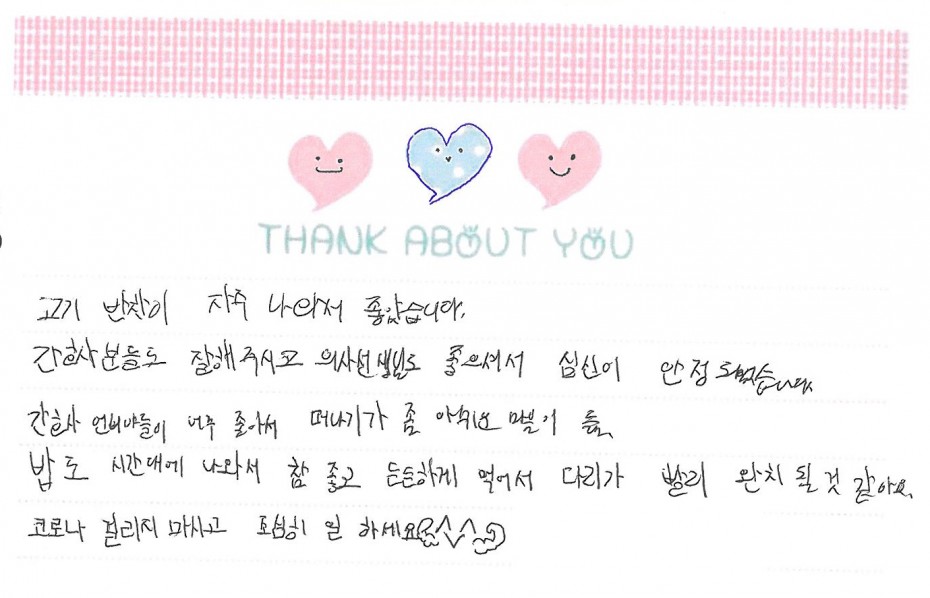 THANK ABOUT YOU
고기 반찬이 자주 나와서 좋았습니다.
간호사분들도 잘해주시고 의사선생님도 좋으셔서 심신이 안정되었습니다.
간호사 언니야들이 너무 좋아서 떠나기가 좀 아쉬운
밥도 시간대에 나와서 참 좋고 든든하게 먹어서 다리가 빨리 완치 될 것 같아요.
코로나 걸리지 마시고 조심히 일 하세요